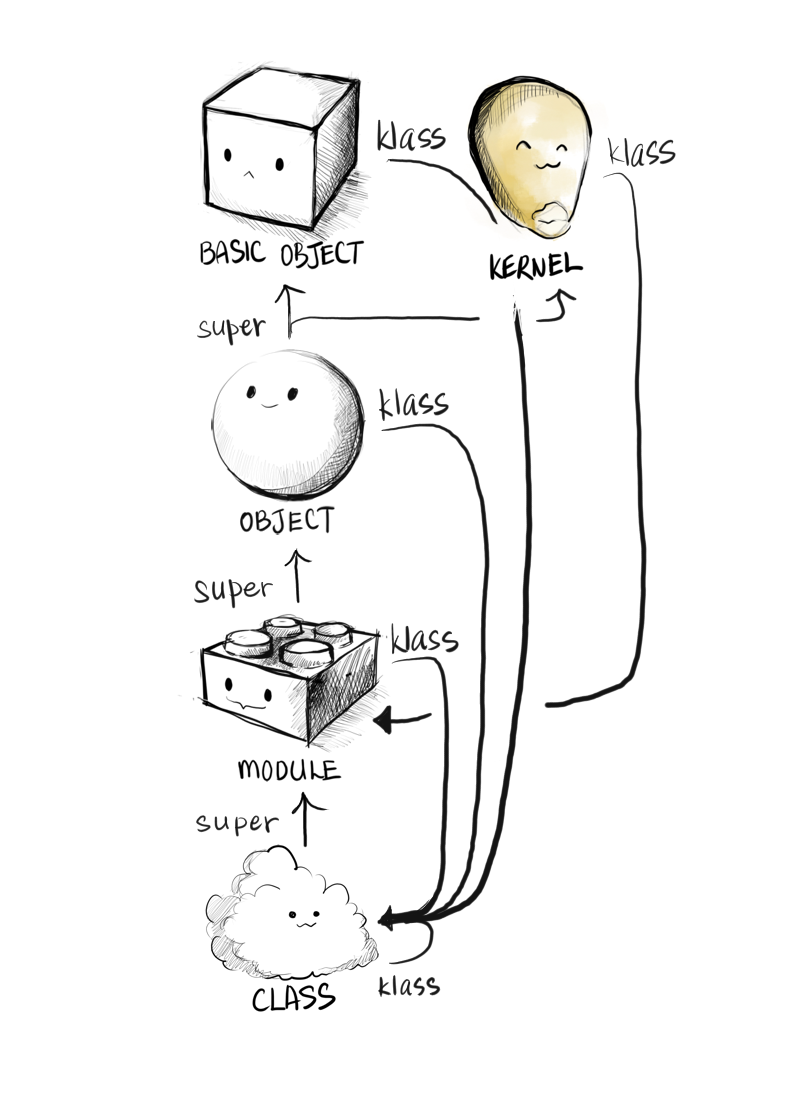 klass
klass
BASIC OBJECT
KERNEL
super
klass
OBJECT
super
klass
MODULE
super
CLASS
klass